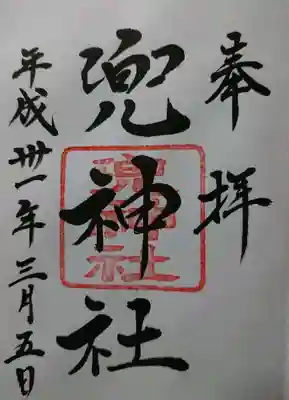 奉拝
兜神社
兜神社
平成卅一年三月五日